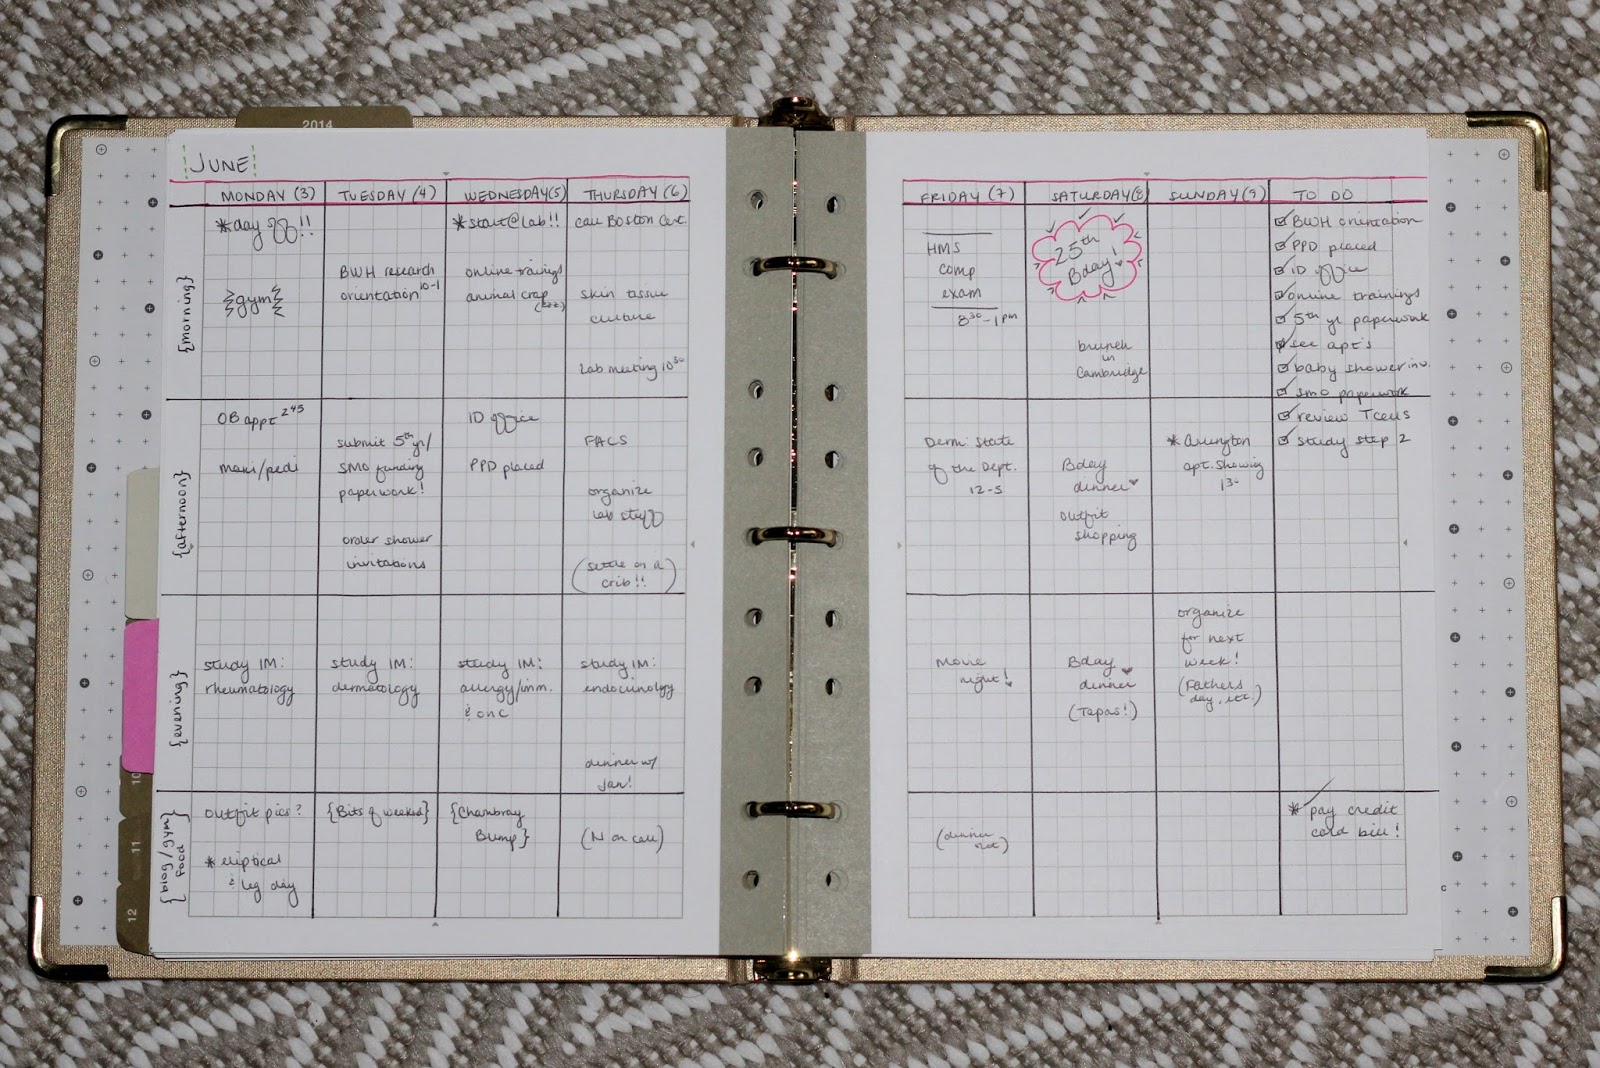 2014
JUNE
MONDAY (3)
TUESDAY (4)
WEDNESDAY (5)
THURSDAY (6)
FRIDAY (7)
SATURDAY (8)
SUNDAY (9)
TO DO
{morning}
*day off!!
gym
BWH research
orientation 10-1
*start@lab!!
online trainings
animal crap
(zzz)
call Boston Cert.
skin tissue
culture
lab meeting 10 30
HMS
comp
exam
8 30 - 1 pm
25th
Bday!
brunch
in
Cambridge
BWH orientation
PPD placed
ID office
online trainings
5th yr paperwork
see apt's
baby shower inv.
SMO paperwork
review T cells
study step 2
{afternoon}
OB appt 2 45
mani/pedi
submit 5th yr/
SMO funding
paperwork!
order shower
invitations
ID office
PPD placed
FACS
organize
lab stuff
(settle on a
crib!!)
Derm: State
of the Dept.
12-5
Bday
dinner
outfit
shopping
* Arlington
apt. showing
1 30
{evening}
study IM:
rheumatology
study IM:
dermatology
study IM:
allergy/imm.
& onc
study IM:
endocrinology
dinner w/
Jan!
movie
night!
Bday
dinner
(Tapas!)
organize
for next
week!
(Fathers
day, etc.)
{blog/gym/
food}
outfit pics?
* elliptical
& leg day
{Bits of weekend}
{Chambray
Bump}
(N on call)
(dinner
out)
* pay credit
card bill!
10
11
12